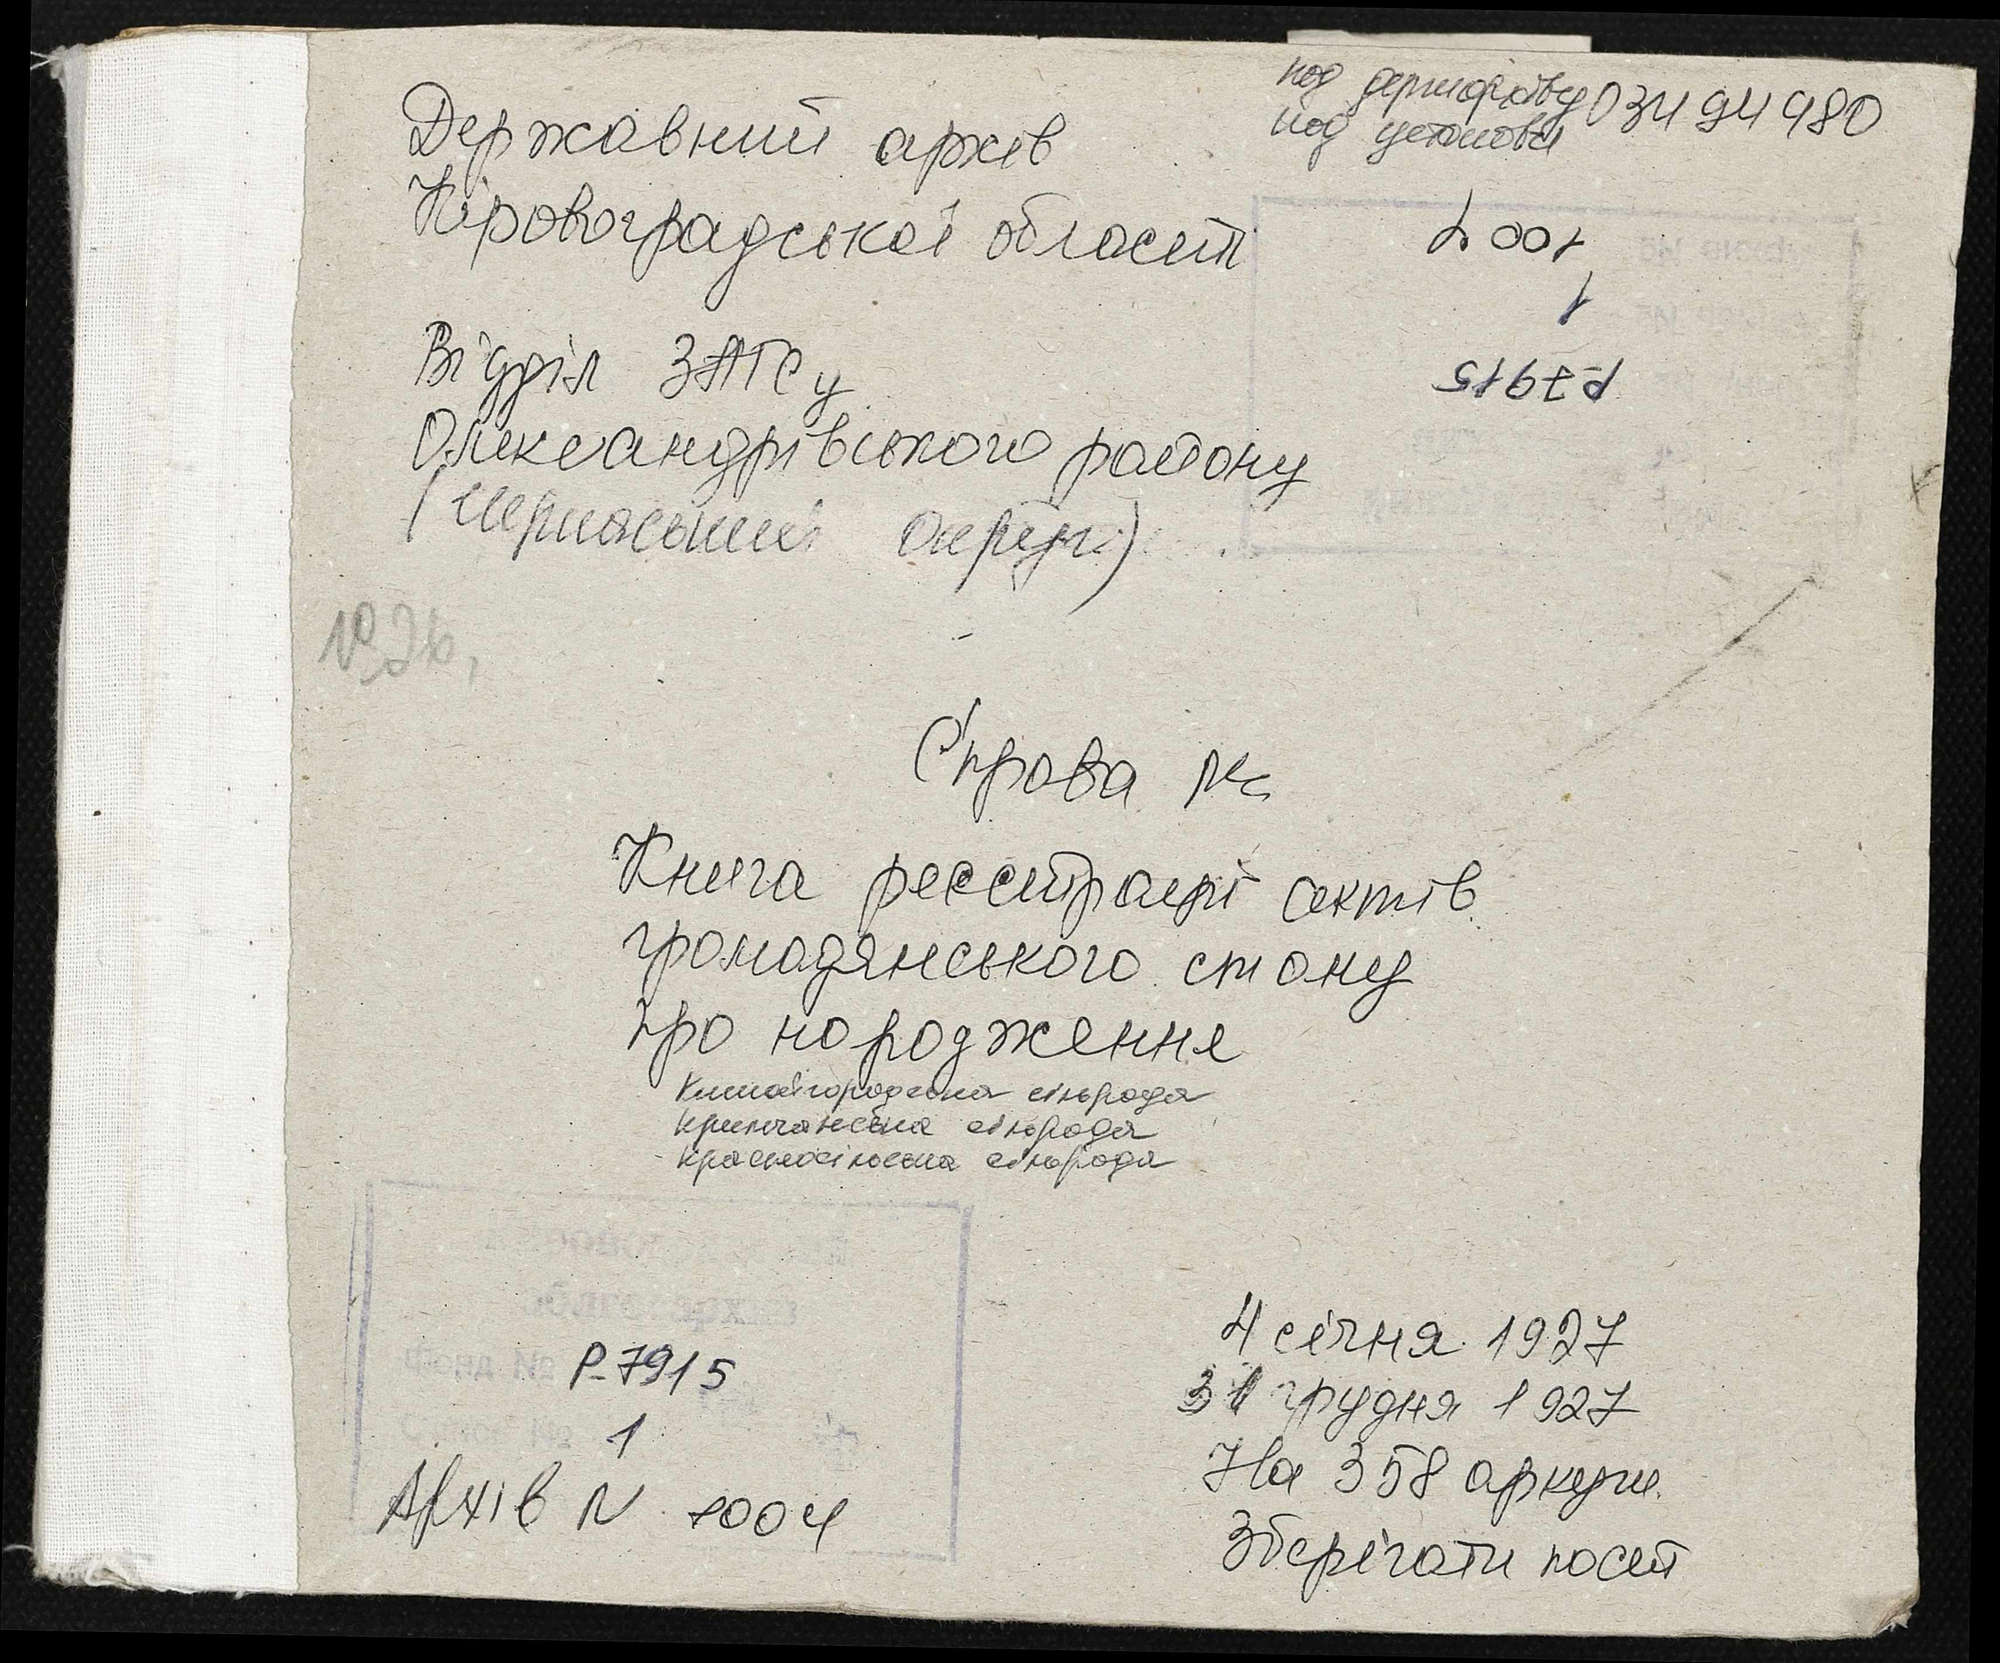 код держархіву 03494980
код установи
Державний архів
Кіровоградської області
1004
1
Р-7915
Відділ ЗАГСу
Олександрівського району
(Черкаський округ)
Справа №
Книга реєстрації актів
громадянського стану
про народження
Китайгородська сільрада
Кримчанська сільрада
Красносільська сільрада
Фонд № Р-7915
1
Архів N 1004
4 січня 1927
31 грудня 1927
На 358 аркуш.
Зберігати пост